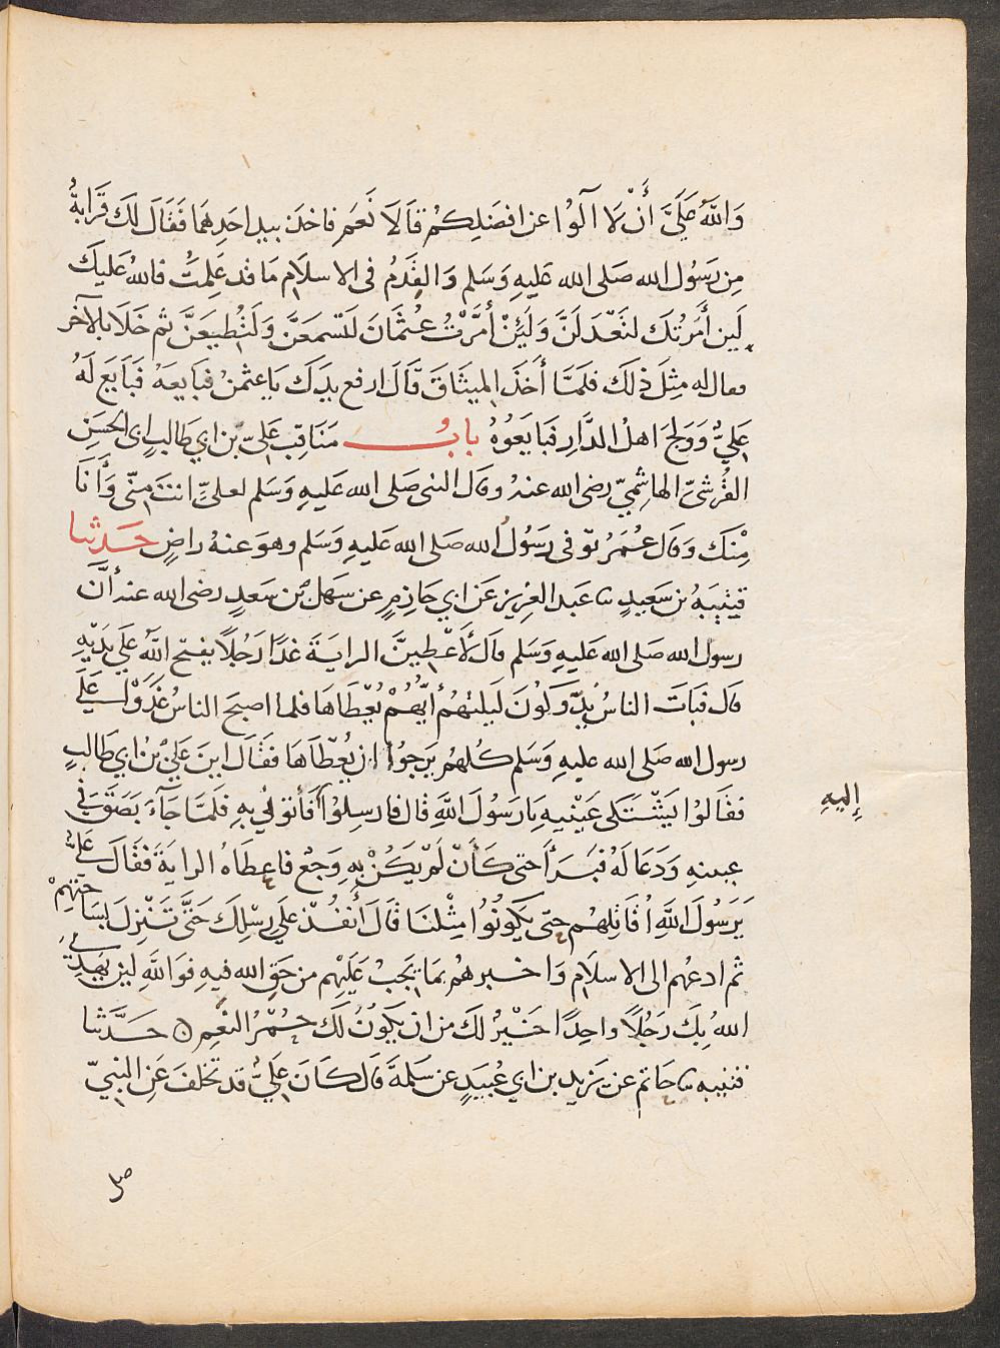 وَاللَّهُ عَلَيَّ أَنْ لَا آلُوا عن افضَلِكُمْ قَالَا نَعَم فاخذ بيد احَدِهمَا فَقَالَ لكَ قَرَابَةُ
مِن رَسُول الله صَلى الله عَليهِ وَسَلم وَالقِدَمُ فى الاسلَام مَا قد عَلِمتَ فاللهُ عَليكَ
لَين أَمَّرْتُكَ لتَعْدِلَنَّ وَلَئِنْ أَمَّرْتُ عُثمَانَ لَتَسْمعَنَّ وَلَتُطيعَنَّ ثم خَلَا بالآخر
فقال له مِثلَ ذلكَ فلمَّا أَخَذَ الميثَاقَ قَالَ ارفع يدَكَ يَا عثمنُ فبَايعَهُ فبَايَع لَهُ
عَليٌّ وَوَلجَ اهلُ الدَّارِ فبَايعُوهُ بابُ مَنَاقِب عَليّ بن ابي طَالبٍ ابي الحسَنِ
القُرشىّ الهاشِميّ رضى الله عنهُ وقال النبى صَلى الله عَليهِ وَسَلم لعلىٍّ انتَ مِنّى وَأَنَا
مِنْكَ وَقالَ عُمَرُ توفى رَسُولُ الله صَلى الله عَليهِ وَسَلم وهوَ عنهُ راضٍ حَدثنا
قتيبَة بن سَعيدٍ نا عَبد العزيز عَن ابي حَازمٍ عن سَهل بن سَعدٍ رضى الله عنه أنَّ
رسول الله صَلى الله عَليهِ وَسَلم قال لأعْطِينَّ الرايَةَ غدًا رَجُلًا يفتح اللَّهُ عَلَى يَدَيْهِ
قال فبَاتَ الناسُ يَدُوكُونَ لَيلتهُمْ أَيُّهُمْ يُعْطَاهَا فلما اصبحَ الناسُ غَدَوْا عَلَى
رسول الله صَلى الله عليهِ وَسَلم كُلهم يَرجُوا ان يُعْطَاهَا فقَالَ اينَ عَليُّ بنُ ابي طَالبٍ
فقَالوُا يَشْتَكى عَيْنيهِ يَا رَسُولَ اللَّهِ قال فارسِلوُا فَأتوني بهِ فلمَّا جَآءَ بَصَقَ فى
إليهِ
عينيهِ وَدَعَا لَهُ فبَرَأَ حتى كَأَنْ لَمْ يَكُنْ بهِ وَجَعٌ فاعطَاهُ الرايَةَ فقَالَ عَلىٌّ
يَرَسُولَ اللَّهِ أُقَاتِلهُم حتى يَكُونُوا مِثْلنَا قَالَ أُنفُذْ عَلَى رِسْلِكَ حَتَّى تَنْزِلَ بسَاحَتِهِمْ
ثم ادعُهم الى الاسلَام وَاخبرهُم بمَا يَجبُ عَلَيْهم من حَقِ الله فيهِ فوَاللَّهِ لين يَهدِىَ
اللهُ بِكَ رَجُلًا واحِدًا خَيْرٌ لكَ من ان يكُونَ لَكَ حُمْرُ النعَمِ ه حَدَّثنا
قتيبه نا حَاتم عن يَزيد بن ابي عُبيَدٍ عن سَلمَةَ قال كَانَ عَليٌّ قد تخلفَ عَنِ النبىّ
صلى